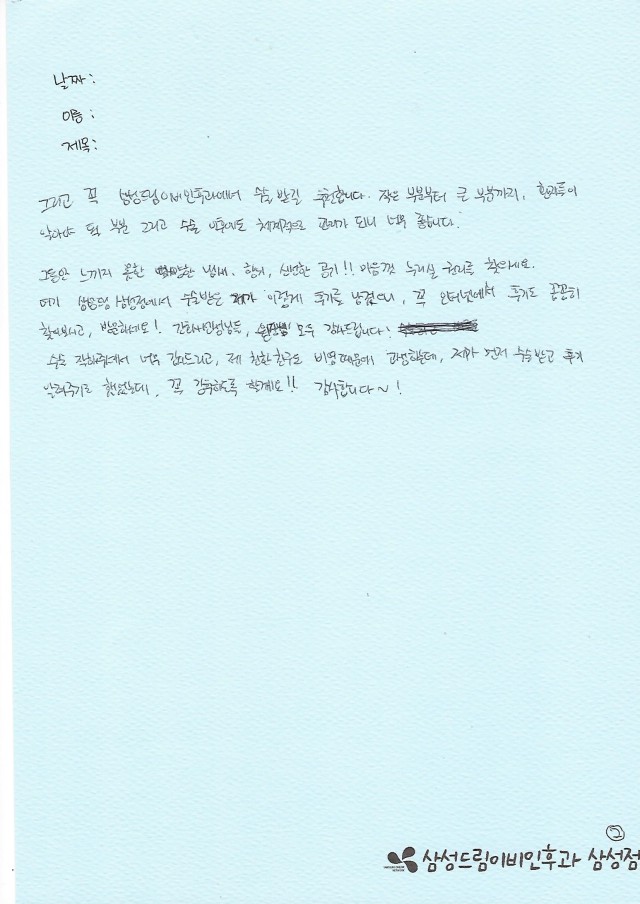 날짜:
이름:
제목:
그리고 꼭 삼성드림이비인후과에서 수술 받길 추천합니다. 작은 부분부터 큰 부분까지, 환자들이
알아야 될 부분 그리고 수술 이후에도 체계적으로 관리가 되니 너무 좋습니다.
그동안 느끼지 못한 냄새, 향기, 신선한 공기!! 마음껏 느끼실 권리를 찾아세요.
여기 삼성점에서 수술받은 제가 이렇게 후기를 남겼으니, 꼭 인터넷에서 후기도 꼼꼼히
찾아보시고, 방문하세요! 간호사선생님들, 모두 감사드립니다!
수술 잘해줘서 너무 감사드리고, 제 친한 친구도 비염때문에 고생하는데, 제가 먼저 수술받고 후기
알려주기로 했었는데, 꼭 강추하도록 할게요!! 감사합니다~!
②
삼성드림이비인후과 삼성점